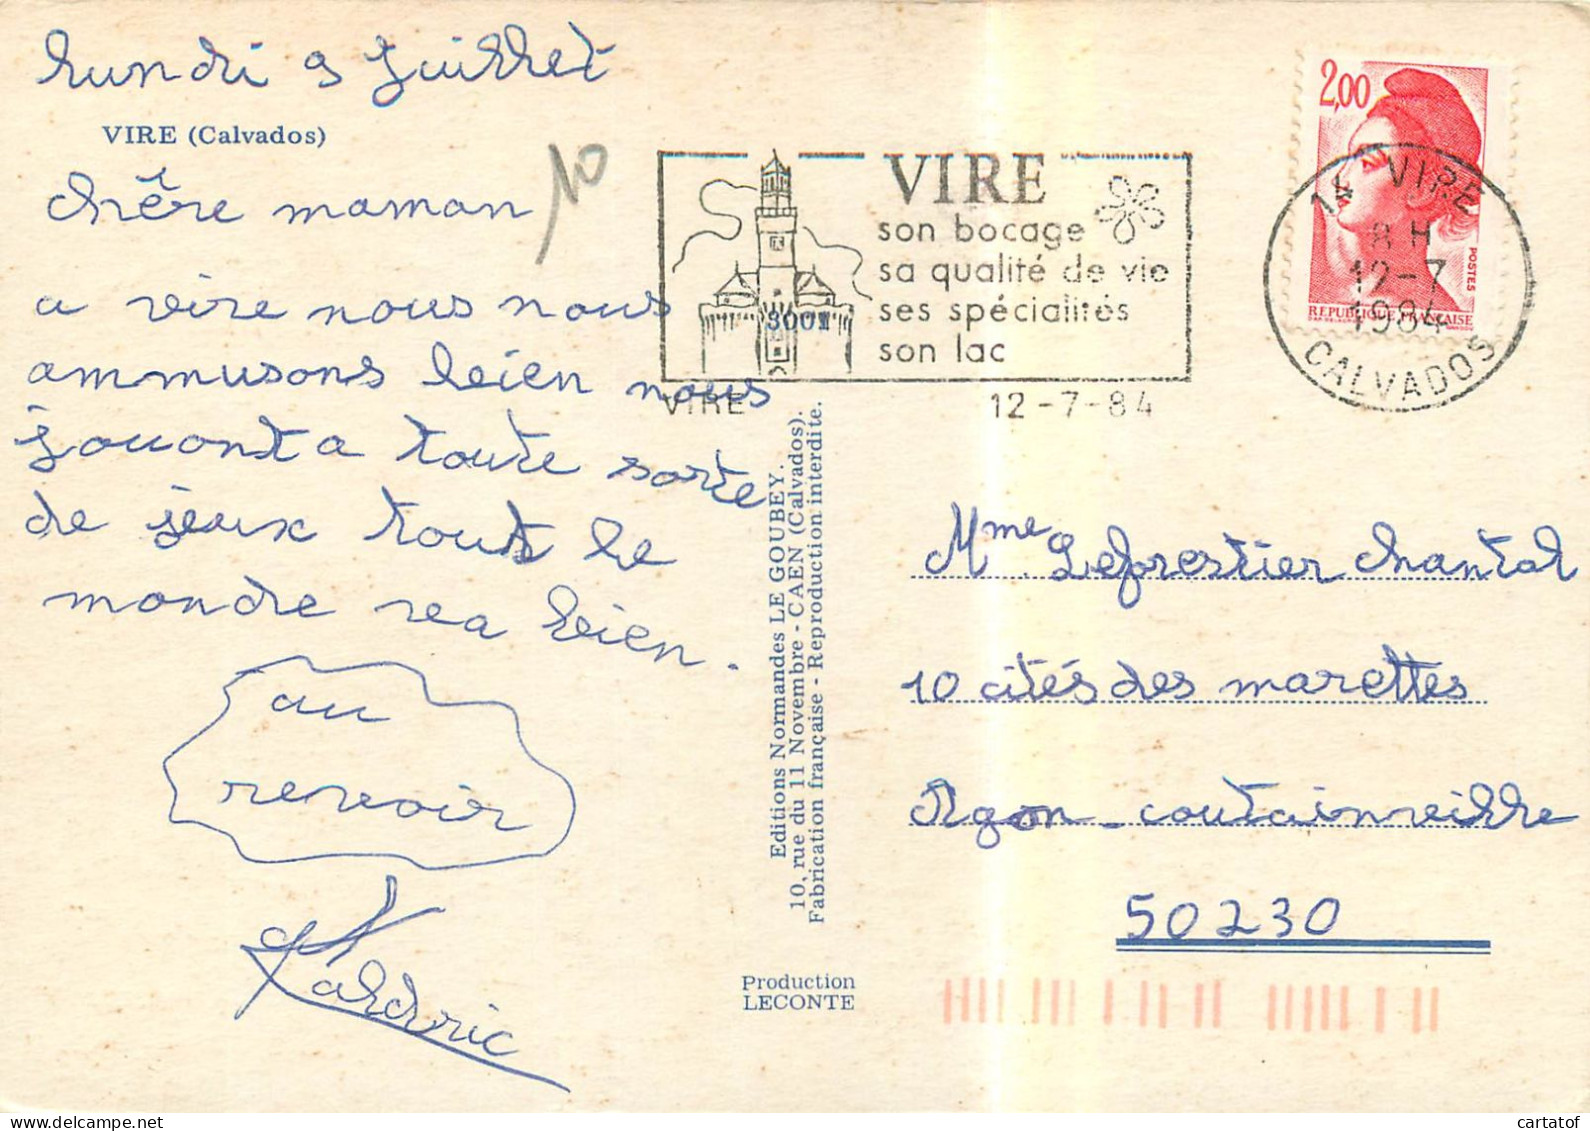 lundi 9 Juillet
VIRE (Calvados)
chère maman
10
a vire nous nous
ammusons bien nous
jouont a toute sorte
de jeux tout le
mondre va bien.
au
revoir
VIRE
son bocage
sa qualité de vie
ses spécialités
son lac
VIRE
12-7-84
2,00
POSTES
REPUBLIQUE FRANÇAISE
14 VIRE
8 H
12-7
1984
CALVADOS
Editions Normandes LE GOUBEY.
10, rue du 11 Novembre - CAEN (Calvados).
Fabrication française - Reproduction interdite.
Production
LECONTE
Mme Leforestier chantal
10 cités des marettes
Agon-coutainville
50230
cartatof